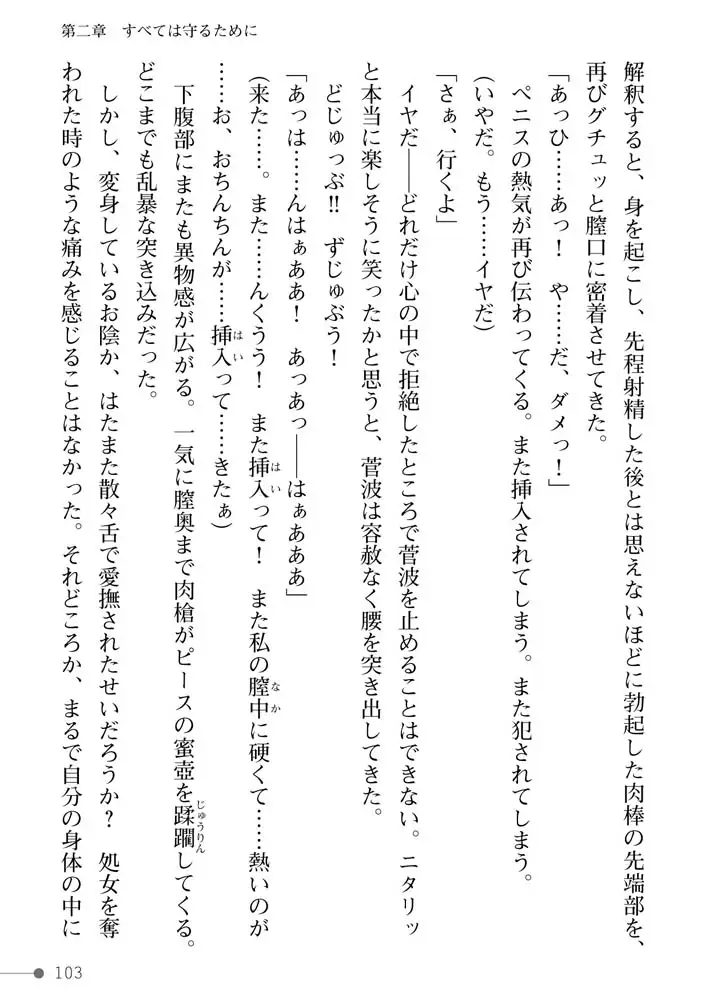 第二章　すべては守るために
解釈すると、身を起こし、先程射精した後とは思えないほどに勃起した肉棒の先端部を、
再びグチュッと膣口に密着させてきた。
「あっひ……あっ！　や……だ、ダメっ！」
ペニスの熱気が再び伝わってくる。また挿入されてしまう。また犯されてしまう。
（いやだ。もう……イヤだ）
「さぁ、行くよ」
イヤだ――どれだけ心の中で拒絶したところで菅波を止めることはできない。ニタリッ
と本当に楽しそうに笑ったかと思うと、菅波は容赦なく腰を突き出してきた。
どじゅっぶ!!　ずじゅぶぅ！
「あっは……んはぁああ！　あっあっ――はぁあああ」
（来た……。また……んくうう！　また挿入って！　また私の膣中に硬くて……熱いのが
……お、おちんちんが……挿入って……きたぁ）
下腹部にまたも異物感が広がる。一気に膣奥まで肉槍がピースの蜜壺を蹂躙してくる。
どこまでも乱暴な突き込みだった。
しかし、変身しているお陰か、はたまた散々舌で愛撫されたせいだろうか？　処女を奪
われた時のような痛みを感じることはなかった。それどころか、まるで自分の身体の中に
103